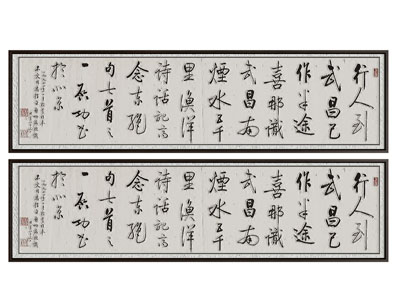 行人到
武昌已
作半途
喜那識
武昌南
煙水五千
里漁洋
詩話記高
念東絕
句七首之
一啟功書
於北京
行人到
武昌已
作半途
喜那識
武昌南
煙水五千
里漁洋
詩話記高
念東絕
句七首之
一啟功書
於北京